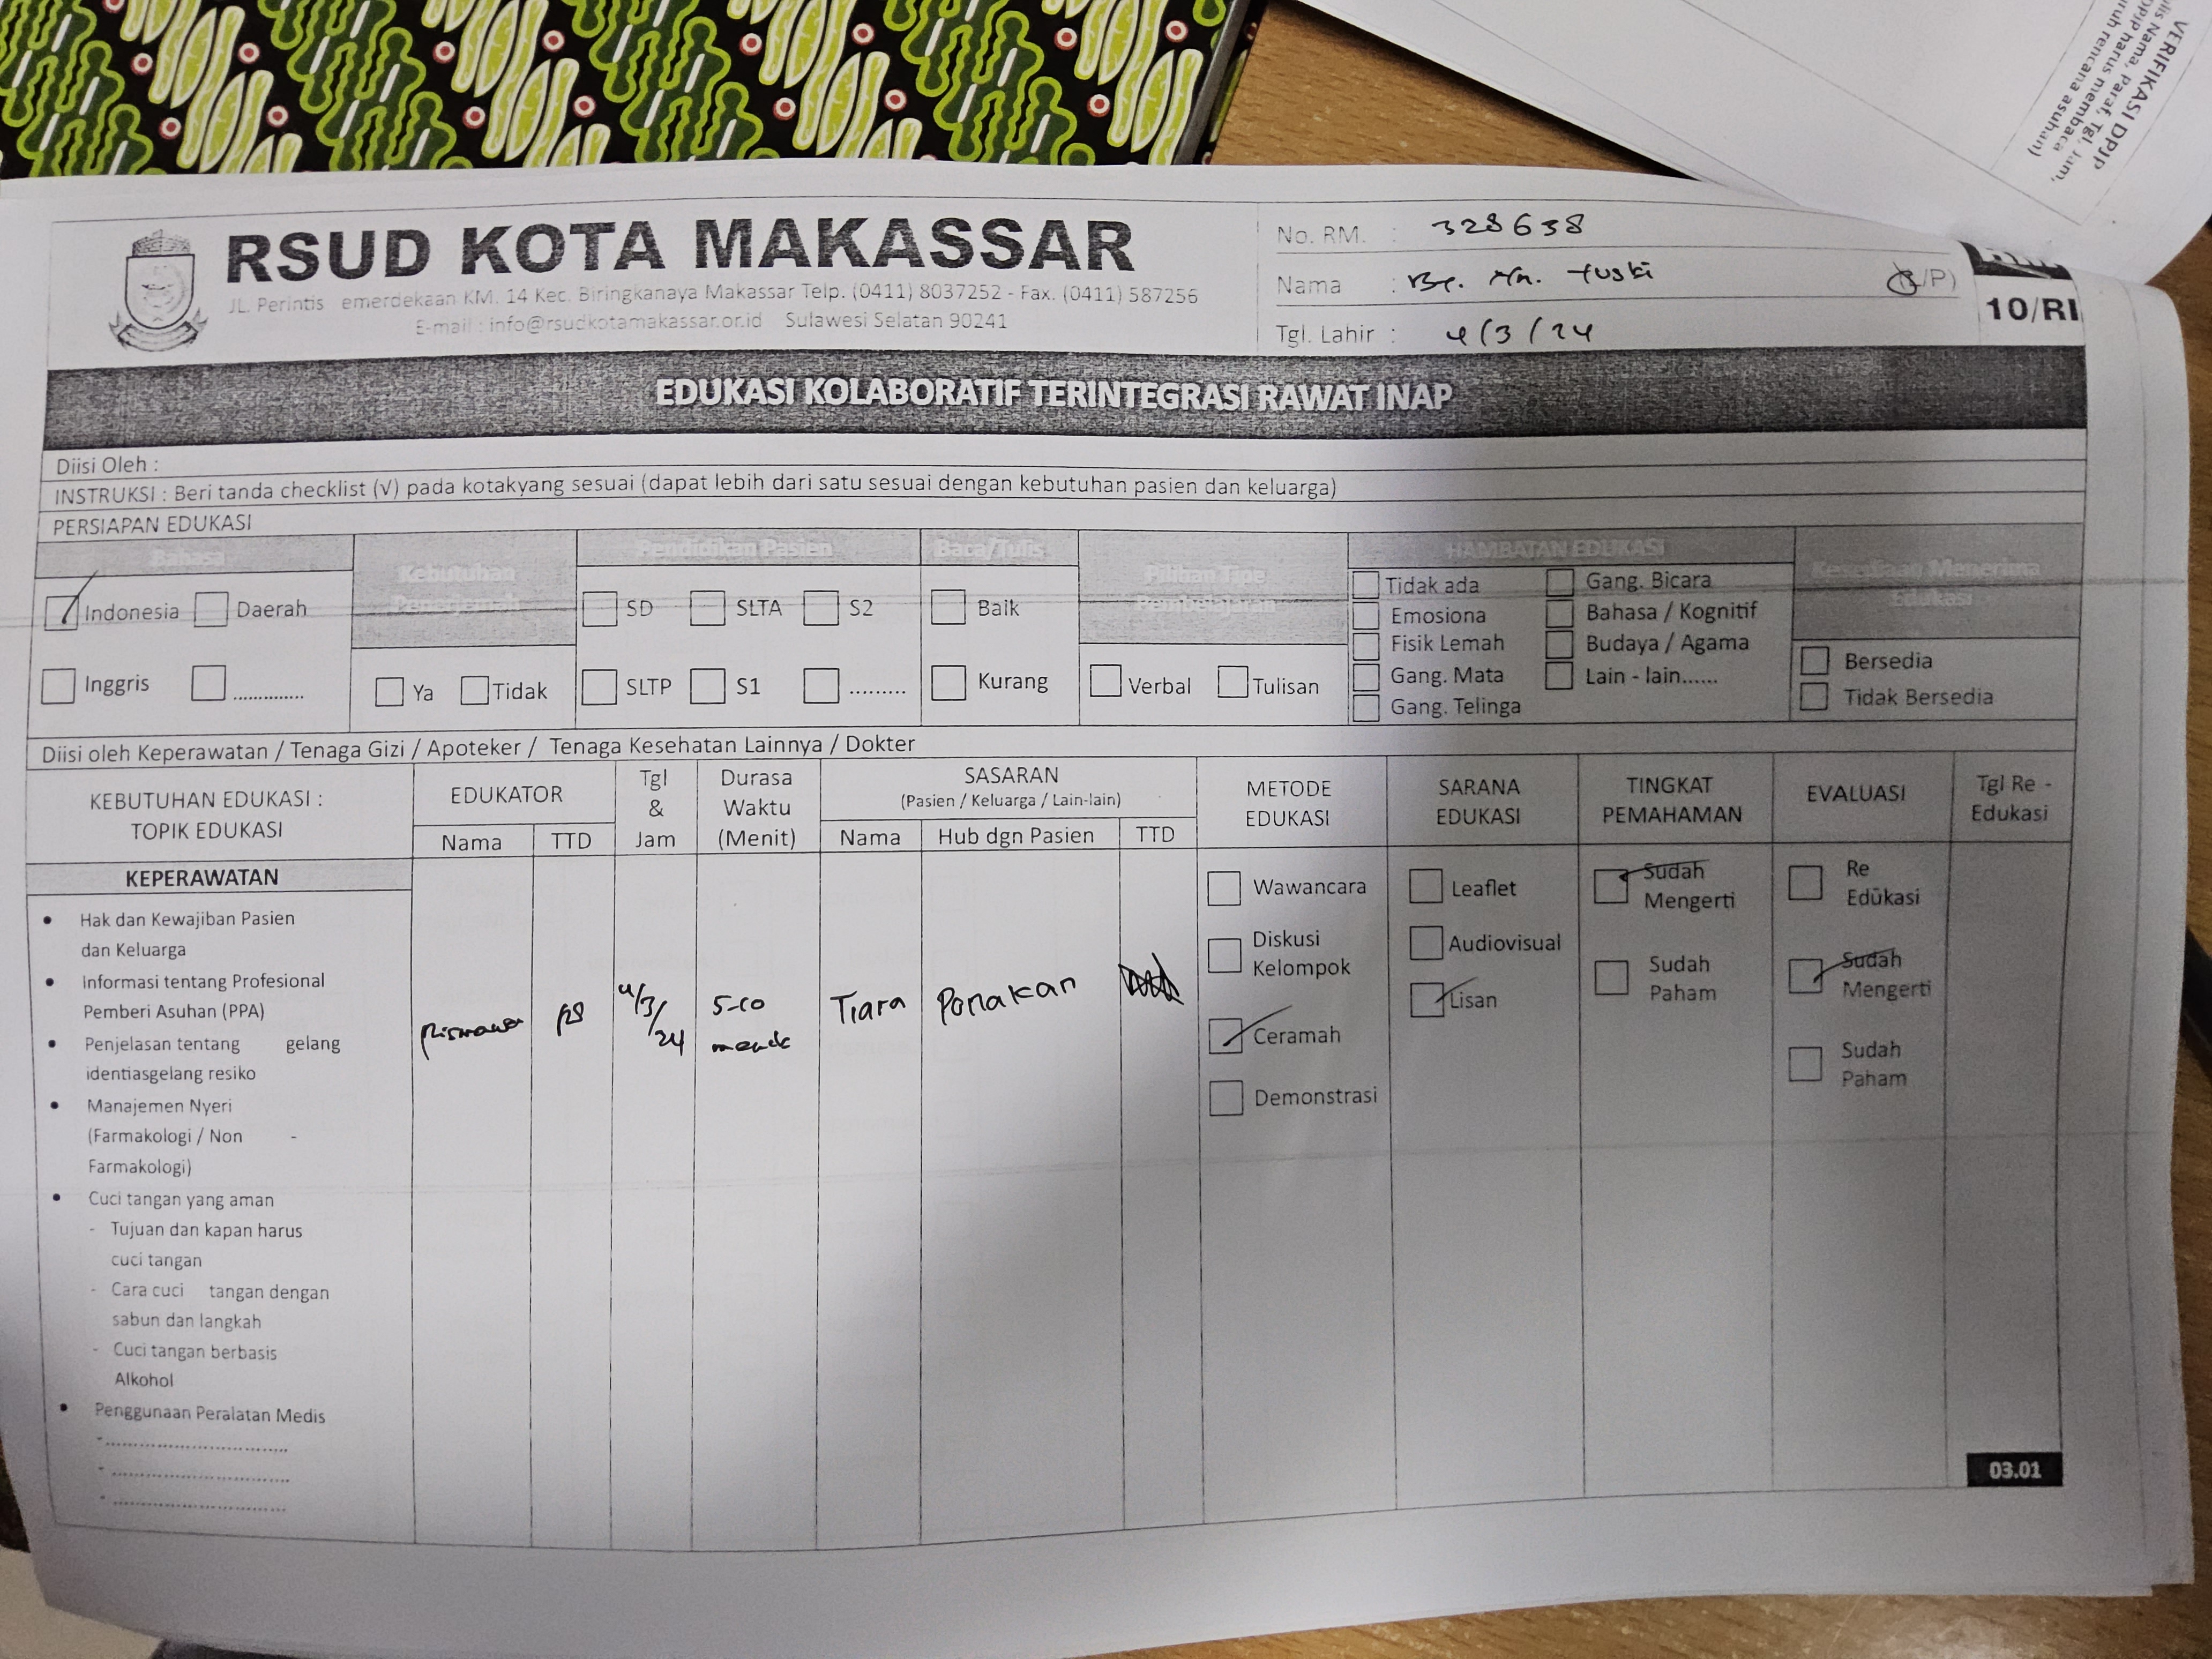 VERIFIKASI DPJP
lis Nama, Paraf, Tgl, Jam,
DPJP harus membaca
uruh rencana asuhan)
RSUD KOTA MAKASSAR
JL. Perintis emerdekaan KM. 14 Kec. Biringkanaya Makassar Telp. (0411) 8037252 - Fax. (0411) 587256
E-mail : info@rsudkotamakassar.or.id Sulawesi Selatan 90241
No. RM. : 328638
Nama : By. Ny. Yuski (L/P)
Tgl. Lahir : 4/3/24
10/RI
EDUKASI KOLABORATIF TERINTEGRASI RAWAT INAP
Diisi Oleh :
INSTRUKSI : Beri tanda checklist (√) pada kotakyang sesuai (dapat lebih dari satu sesuai dengan kebutuhan pasien dan keluarga)
PERSIAPAN EDUKASI
Bahasa
Indonesia Daerah
Inggris ..............
Kebutuhan
Penerjemah
Ya Tidak
Pendidikan Pasien
SD SLTA S2
SLTP S1 .........
Baca/Tulis
Baik
Kurang
Pilihan Tipe
Pembelajaran
Verbal Tulisan
HAMBATAN EDUKASI
Tidak ada Gang. Bicara
Emosiona Bahasa / Kognitif
Fisik Lemah Budaya / Agama
Gang. Mata Lain - lain......
Gang. Telinga
Kesediaan Menerima
Edukasi
Bersedia
Tidak Bersedia
Diisi oleh Keperawatan / Tenaga Gizi / Apoteker / Tenaga Kesehatan Lainnya / Dokter
KEBUTUHAN EDUKASI :
TOPIK EDUKASI
EDUKATOR
Nama TTD
Tgl
&
Jam
Durasa
Waktu
(Menit)
SASARAN
(Pasien / Keluarga / Lain-lain)
Nama Hub dgn Pasien TTD
METODE
EDUKASI
SARANA
EDUKASI
TINGKAT
PEMAHAMAN
EVALUASI
Tgl Re -
Edukasi
KEPERAWATAN
• Hak dan Kewajiban Pasien
dan Keluarga
• Informasi tentang Profesional
Pemberi Asuhan (PPA)
• Penjelasan tentang gelang
identiasgelang resiko
• Manajemen Nyeri
(Farmakologi / Non -
Farmakologi)
• Cuci tangan yang aman
- Tujuan dan kapan harus
cuci tangan
- Cara cuci tangan dengan
sabun dan langkah
- Cuci tangan berbasis
Alkohol
• Penggunaan Peralatan Medis
4/3/24
5-10
Tiara
Ponakan
Wawancara
Diskusi
Kelompok
Ceramah
Demonstrasi
Leaflet
Audiovisual
Lisan
Sudah
Mengerti
Sudah
Paham
Re
Edukasi
Sudah
Mengerti
Sudah
Paham
03.01